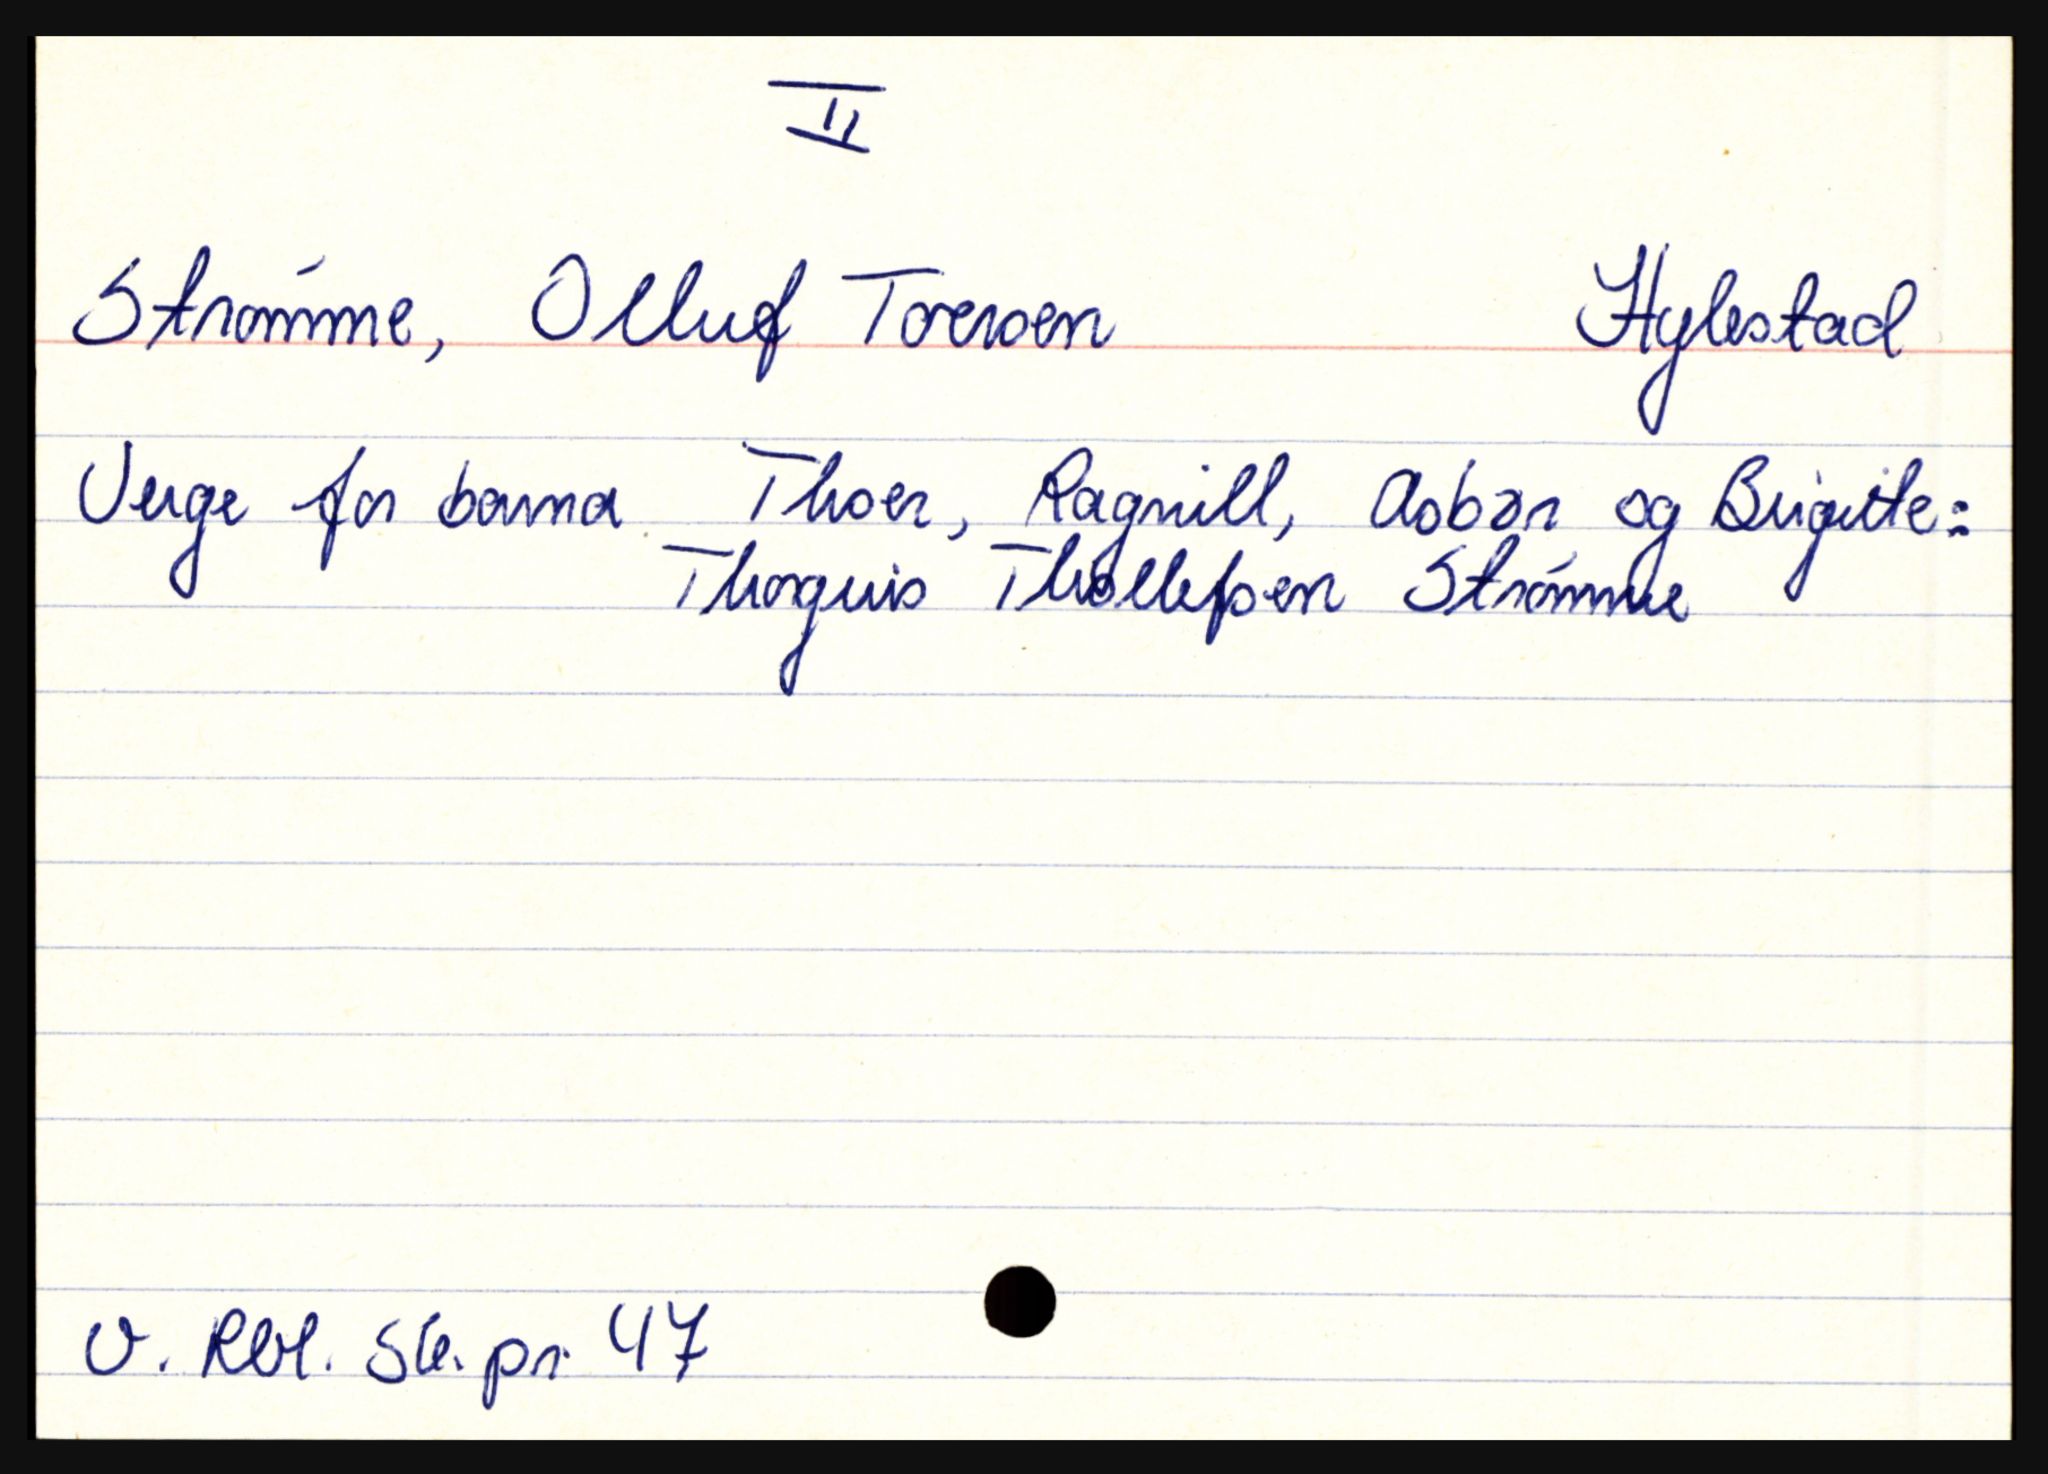 II
Strømme, Olluf Toersen Hylestad
Verge for barna Thoer, Ragnill, Asbør og Brigitte:
Thorguis Thollefsen Strømme
V. Rbl. Sk. pr. 47